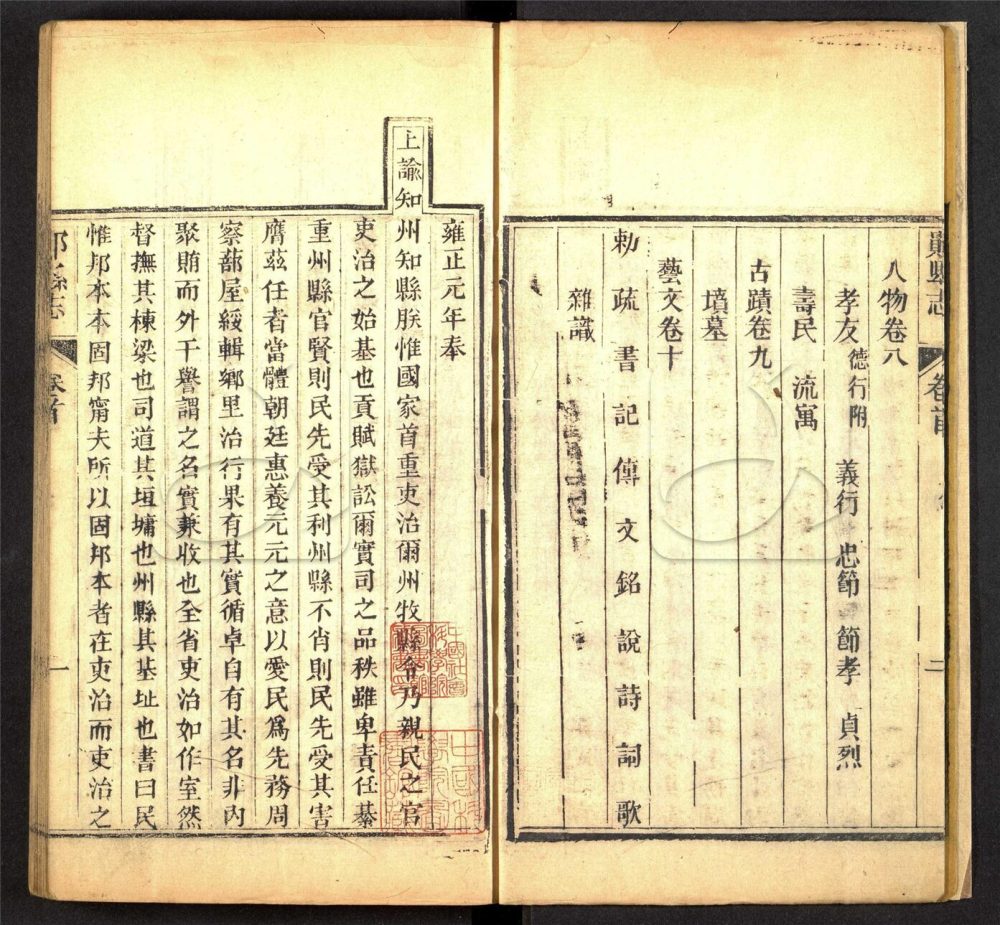 鄖縣志
卷首
二
人物卷八
孝友 德行附 義行 忠節 節孝 貞烈
壽民 流寓
古蹟卷九
墳墓
藝文卷十
勅 疏 書 記 傳 文 銘 說 詩 詞 歌
雜識
雍正元年奉
上諭知州知縣朕惟國家首重吏治爾州牧縣令乃親民之官
吏治之始基也貢賦獄訟爾實司之品秩雖卑責任綦
重州縣官賢則民先受其利州縣不肖則民先受其害
膺茲任者當體朝廷惠養元元之意以愛民為先務周
察蔀屋綏輯鄉里治行果有其實循卓自有其名非內
聚賄而外干譽謂之名實兼收也全省吏治如作室然
督撫其棟梁也司道其垣墉也州縣其基址也書曰民
惟邦本本固邦甯夫所以固邦本者在吏治而吏治之
縣志
卷首
一